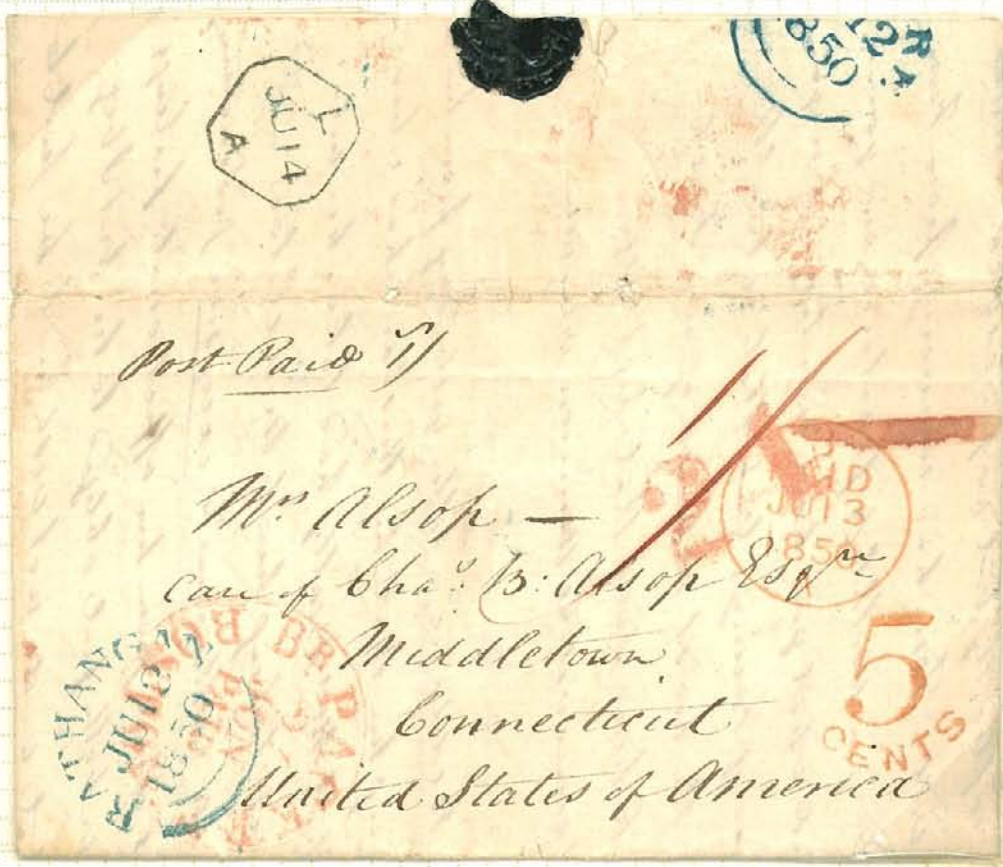 L
JU14
A
RA
12
850
Post Paid 1/
1/
Mrs. Alsop —
PAID
JU13
1850
care of Chas. B: Alsop Esqre
Middletown
Connecticut
United States of America
5
CENTS
RATHANGA
JU12
1850
BR. PACKET
BOS